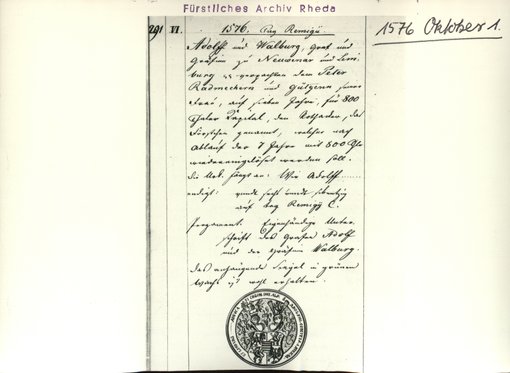 Fürstliches Archiv Rheda
1576 Oktober 1.
291 VI. 1576. Tag Remigii.
Adolff und Walburg, Graf und
Gräfin zu Neuwenar und Lim-
burg verpachten dem Peter
Rademechern und Gütgenn seiner
Frau, auf sieben Jahre, für 800
Thaler Kapital, den
genannt, welcher nach
Ablauf der 7 Jahre mit 800 Thlr
wiedereingelöst werden soll.
die Urk. fängt an: Wir Adolff
endigt:
auf tag Remigii C.
Pergament. Eigenhändige Unter-
schrift des Grafen Adolf
und der Gräfin Walburg.
Das anhangende Siegel in grünem
Wachs ist wohl erhalten.